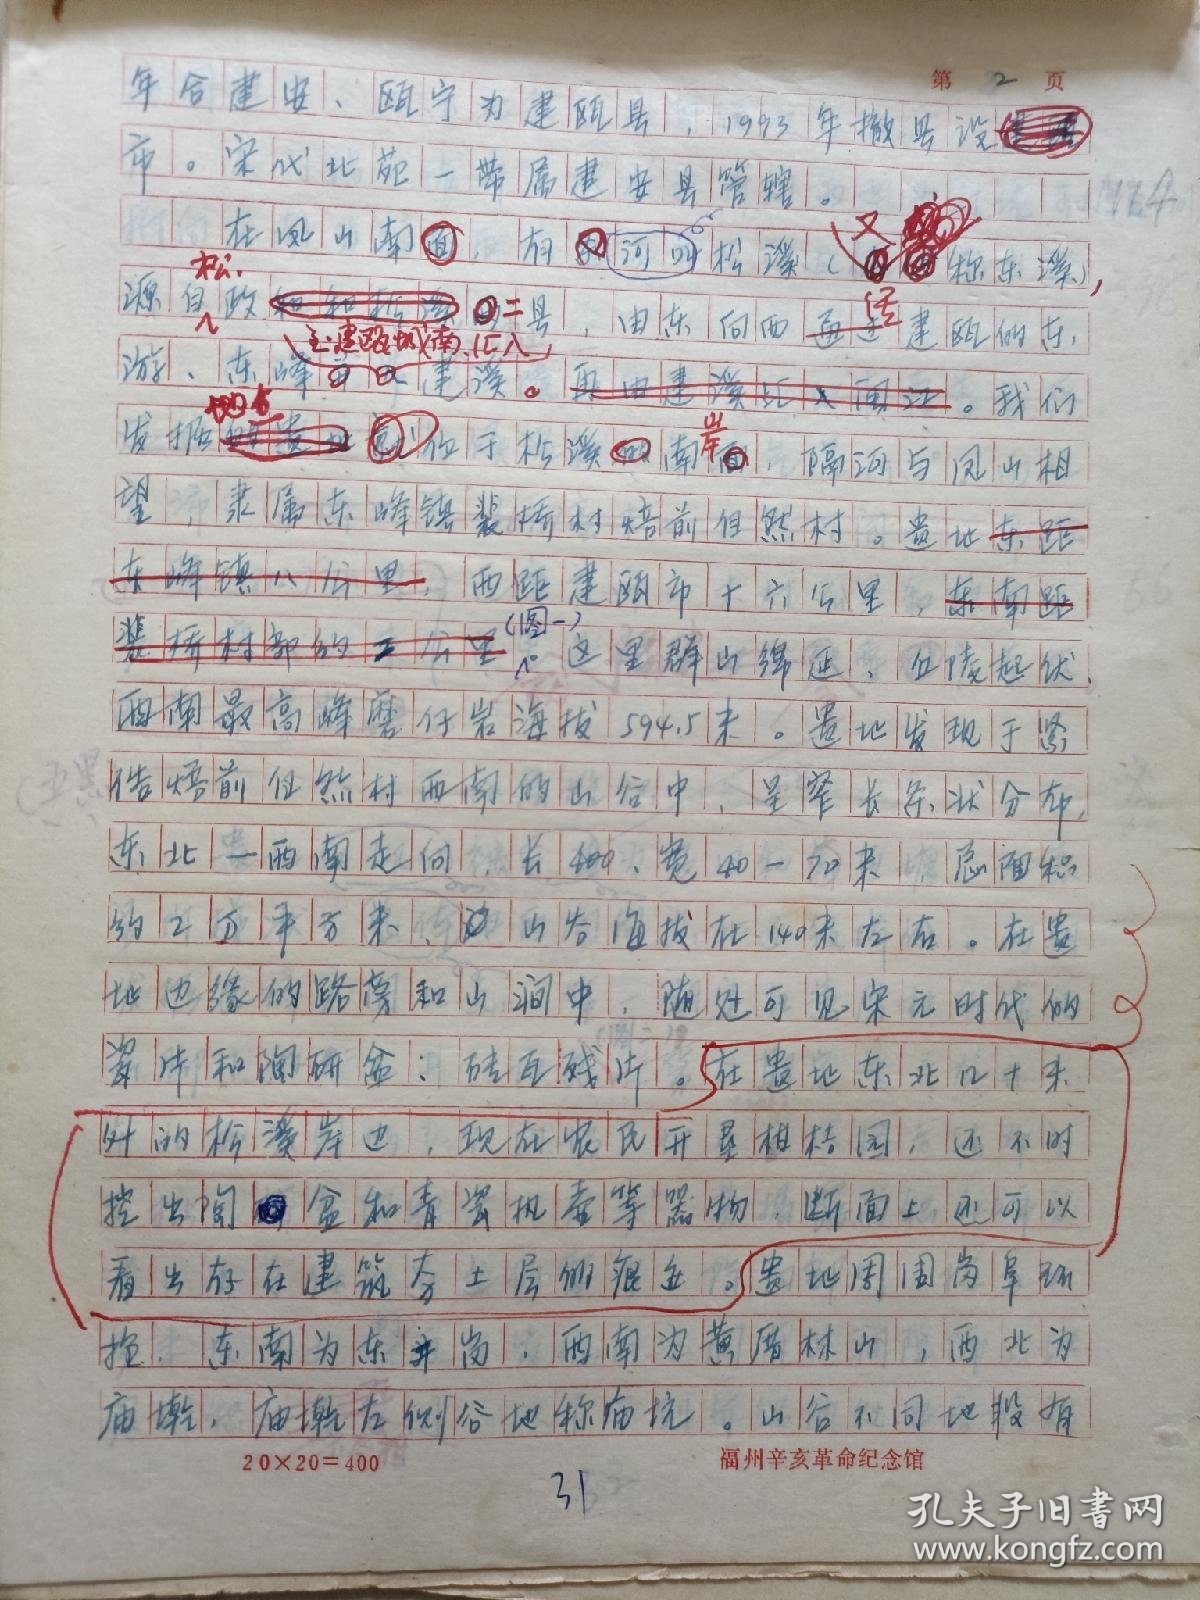 第 2 页
年合建安、瓯宁为建瓯县，1993年撤县设
市。宋代北苑一带属建安县管辖。
在凤山南面，有河叫松溪（又称东溪），
松
源自政和和松溪二县，由东向西 建瓯的东
至建瓯城南汇入
游、东峰 建溪。再由建溪汇入闽江。我们
发掘 位于松溪南岸，隔河与凤山相
望，隶属东峰镇裴桥村焙前自然村。遗地东距
东峰镇八公里，西距建瓯市十六公里，东南距
裴桥村部约2公里（图一）。这里群山绵延、丘陵起伏，
西南最高峰磨仔岩海拔594.5米。遗地发现于紧
偌焙前自然村西南的山谷中，呈窄长条状分布，
东北—西南走向，长400、宽40—70米，总面积
约2万平方米，山谷海拔在140米左右。在遗
地边缘的路旁和山涧中，随处可见宋元时代的
瓷片和陶研盆；砖瓦残片。在遗地东北几十米
外的松溪岸边，现在农民开垦柑桔园，还不时
挖出陶盆和青瓷执壶等器物，断面上还可以
看出存在建筑夯土层的痕迹。遗地周围岗阜环
抱，东南为东井岗，西南为黄厝林山，西北为
庙墘，庙墘左侧谷地称庙坑。山谷不同地段有
20×20=400
福州辛亥革命纪念馆
31
孔夫子旧书网
www.kongfz.com